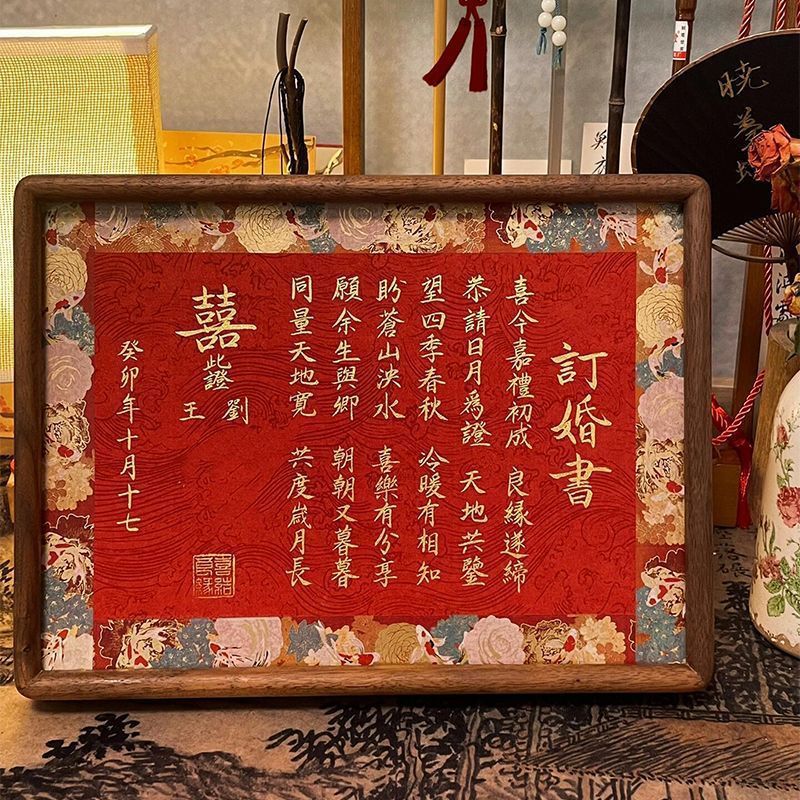 訂婚書
喜今嘉禮初成 良緣遂締
恭請日月為證 天地共鑒
望四季春秋 冷暖有相知
盼蒼山泱水 喜樂有分享
願余生與卿 朝朝又暮暮
同量天地寬 共度歲月長
囍
此證
劉
王
癸卯年十月十七
喜結良緣
曉